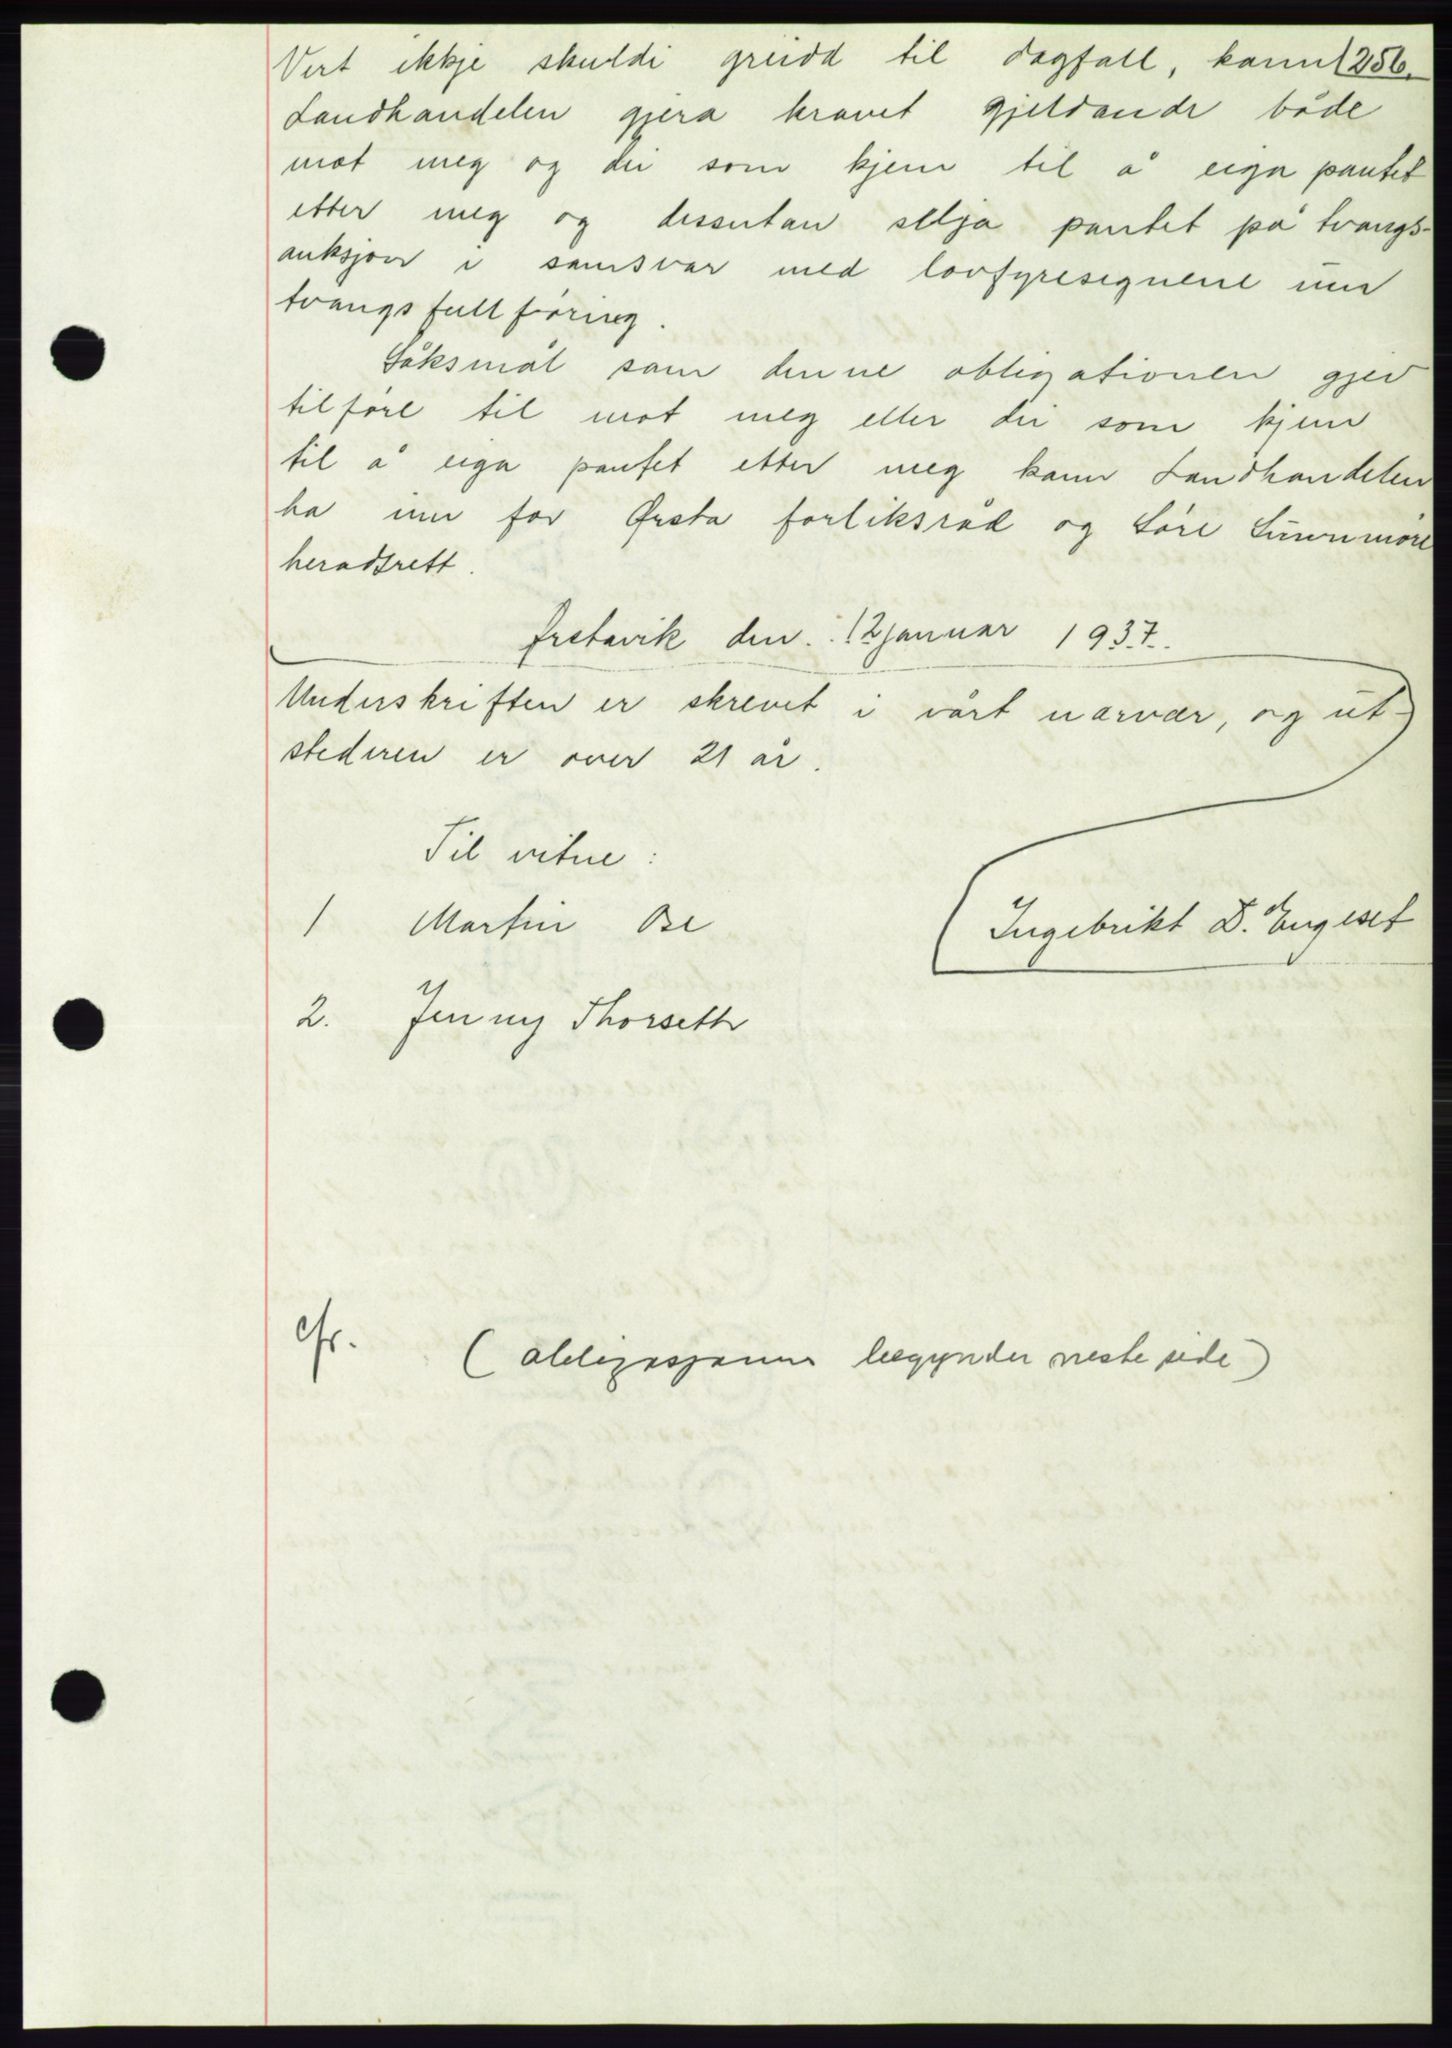 Vert ikkje skuldi greidd til dagfall, kann 256.
Landhandelen gjera kravet gjeldande både
mot meg og dei som kjem til å eiga pantet
etter meg og dessutan selja pantet på tvangs-
auksjon i samsvar med lovfyresegnene um
tvangsfullføring.
Søksmål som denne obligationen gjev
tilføre til mot meg eller dei som kjem
til å eiga pantet etter meg kann Landhandelen
ha inn for Ørsta forliksråd og Søre Sunnmøre
heradsrett.
Ørstavik den. 12 januar 1937.
Underskriften er skrevet i vårt nærvær, og ut-
stederen er over 21 år.
Til vitne:
1 Martin Ose
Ingebrikt D. Engeset
2. Jenny Thorseth
cfr. (obligasjonen begynder neste side)